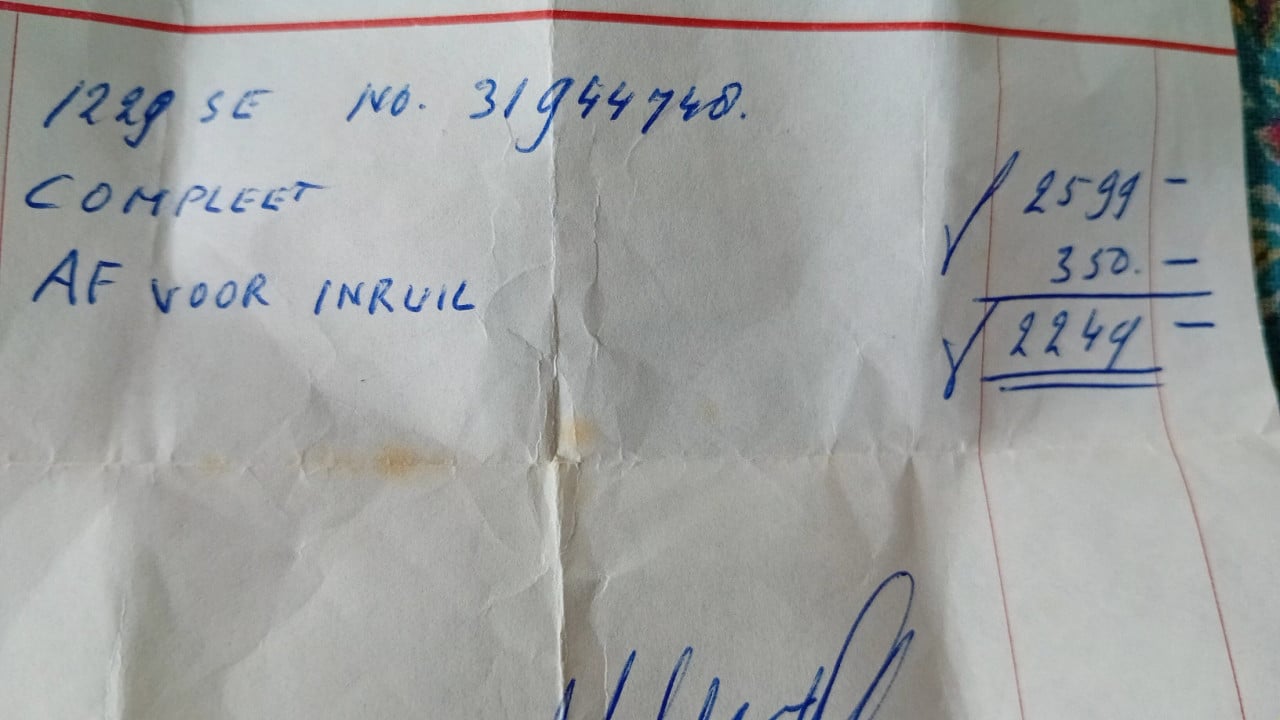 1229 SE No. 31944748.
COMPLEET √ 2599 -
AF VOOR INRUIL 350. -
√ 2249 -